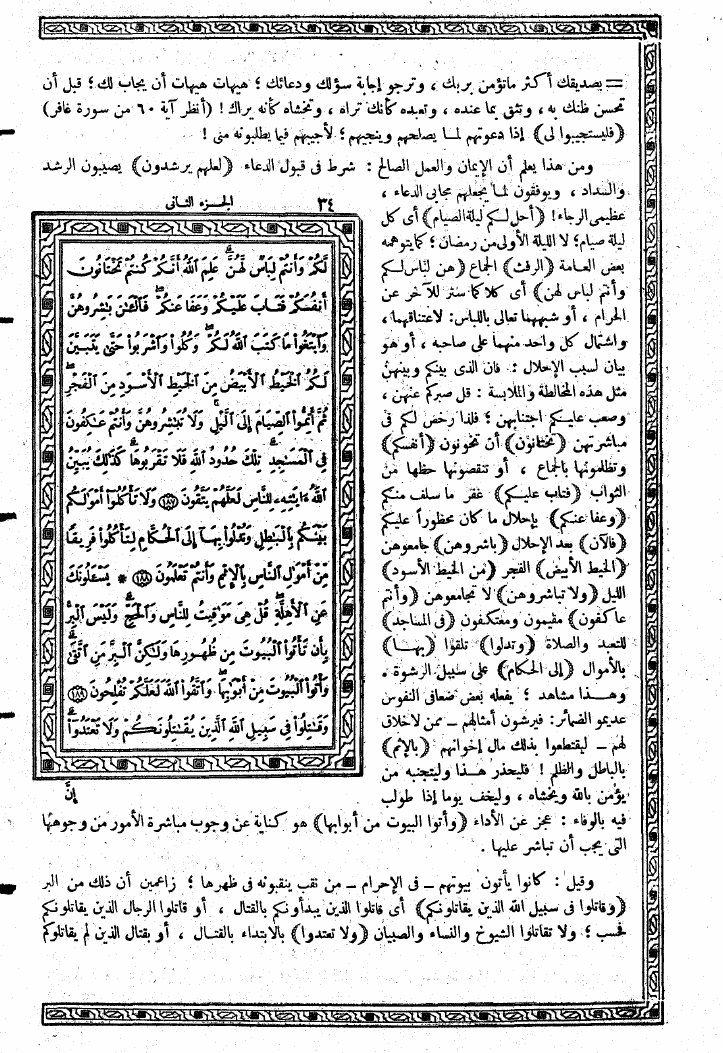 = بصديقك أكثر ماتؤمن بربك ، وترجو إجابة سؤلك ودعائك ؛ هيهات هيهات أن يجاب لك ؛ قبل أن
تحسن ظنك به ، وتثق بما عنده ، وتعبده كأنك تراه ، وتخشاه كأنه يراك ! (أنظر آية ٦٠ من سورة غافر)
(فليستجيبوا لى) إذا دعوتهم لما يصلحهم وينجيهم ؛ لأجيبهم فيما يطلبونه منى !
ومن هذا يعلم أن الإيمان والعمل الصالح : شرط فى قبول الدعاء (لعلهم يرشدون) يصيبون الرشد
والسداد ، ويوفقون لما يجعلهم مجابى الدعاء ،
عظيمى الرجاء! (أحل لكم ليلة الصيام) أى كل
ليلة صيام؛ لا الليلة الأولى من رمضان ؛ كما يتوهمه
بعض العامة (الرفث) الجماع (هن لباس لكم
وأنتم لباس لهن) أى كلاكما ستر للآخر عن
الحرام ، أو شبههما تعالى باللباس: لاعتناقهما ،
واشتمال كل واحد منهما على صاحبه ، أو هو
بيان لسبب الإحلال : فان الذى بينكم وبينهن
مثل هذه المخالطة والملابسة : قل صبركم عنهن ،
وصعب عليكم اجتنابهن ؛ فلذا رخص لكم فى
مباشرتهن (تختانون) أن تخونون (أنفسكم)
وتظلمونها بالجماع ، أو تنقصونها حظها من
الثواب (فتاب عليكم) غفر ما سلف منكم
(وعفا عنكم) بإحلال ما كان محظوراً عليكم
(فالآن) بعد الإحلال (باشروهن) جامعوهن
(الخيط الأبيض) الفجر (من الخيط الأسود)
الليل (ولا تباشروهن) لا تجامعوهن (وأنتم
عاكفون) مقيمون ومعتكفون (فى المساجد)
للتعبد والصلاة (وتدلوا) تلقوا (بها)
بالأموال (إلى الحكام) على سبيل الرشوة .
وهذا مشاهد ؛ يفعله بعض ضعافى النفوس
عديمو الضمائر: فيرشون أمثالهم – ممن لاخلاق
لهم – ليقتطعوا بذلك مال إخوانهم (بالإثم)
بالباطل والظلم ! فليحذر هذا وليتجنبه من
يؤمن بالله ويخشاه ، وليخف يوما إذا طولب
فيه بالوفاء : عجز عن الأداء (وأتوا البيوت من أبوابها) هو كناية عن وجوب مباشرة الأمور من وجوهها
التى يجب أن تباشر عليها .
وقيل : كانوا يأتون بيوتهم – فى الإحرام – من نقب ينقبونه فى ظهرها ؛ زاعمين أن ذلك من البر
(وقاتلوا فى سبيل الله الذين يقاتلونكم) أى قاتلوا الذين يبدأونكم بالقتال ، أو قاتلوا الرجال الذين يقاتلونكم
فحسب ؛ ولا تقاتلوا الشيوخ والنساء والصبيان (ولا تعتدوا) بالابتداء بالقتال ، أو بقتال الذين لم يقاتلوكم
٣٤ الجزء الثانى
لَّكُمْ وَأَنتُمْ لِبَاسٌ لَّهُنَّ عَلِمَ اللَّهُ أَنَّكُمْ كُنتُمْ تَخْتَانُونَ
أَنفُسَكُمْ فَتَابَ عَلَيْكُمْ وَعَفَا عَنكُمْ فَالْـَٰٔنَ بَٰشِرُوهُنَّ
وَابْتَغُوا۟ مَا كَتَبَ اللَّهُ لَكُمْ وَكُلُوا۟ وَاشْرَبُوا۟ حَتَّىٰ يَتَبَيَّنَ
لَكُمُ الْخَيْطُ الْأَبْيَضُ مِنَ الْخَيْطِ الْأَسْوَدِ مِنَ الْفَجْرِ
ثُمَّ أَتِمُّوا۟ الصِّيَامَ إِلَى الَّيْلِ وَلَا تُبَٰشِرُوهُنَّ وَأَنتُمْ عَٰكِفُونَ
فِى الْمَسَٰجِدِ تِلْكَ حُدُودُ اللَّهِ فَلَا تَقْرَبُوهَا كَذَٰلِكَ يُبَيِّنُ
اللَّهُ ءَايَٰتِهِۦ لِلنَّاسِ لَعَلَّهُمْ يَتَّقُونَ ١٨٧ وَلَا تَأْكُلُوٓا۟ أَمْوَٰلَكُم
بَيْنَكُم بِالْبَٰطِلِ وَتُدْلُوا۟ بِهَآ إِلَى الْحُكَّامِ لِتَأْكُلُوا۟ فَرِيقًا
مِّنْ أَمْوَٰلِ النَّاسِ بِالْإِثْمِ وَأَنتُمْ تَعْلَمُونَ ١٨٨ * يَسْـَٔلُونَكَ
عَنِ الْأَهِلَّةِ قُلْ هِىَ مَوَٰقِيتُ لِلنَّاسِ وَالْحَجِّ وَلَيْسَ الْبِرُّ
بِأَن تَأْتُوا۟ الْبُيُوتَ مِن ظُهُورِهَا وَلَٰكِنَّ الْبِرَّ مَنِ اتَّقَىٰ
وَأْتُوا۟ الْبُيُوتَ مِنْ أَبْوَٰبِهَا وَاتَّقُوا۟ اللَّهَ لَعَلَّكُمْ تُفْلِحُونَ ١٨٩
وَقَٰتِلُوا۟ فِى سَبِيلِ اللَّهِ الَّذِينَ يُقَٰتِلُونَكُمْ وَلَا تَعْتَدُوٓا۟
إنَّ